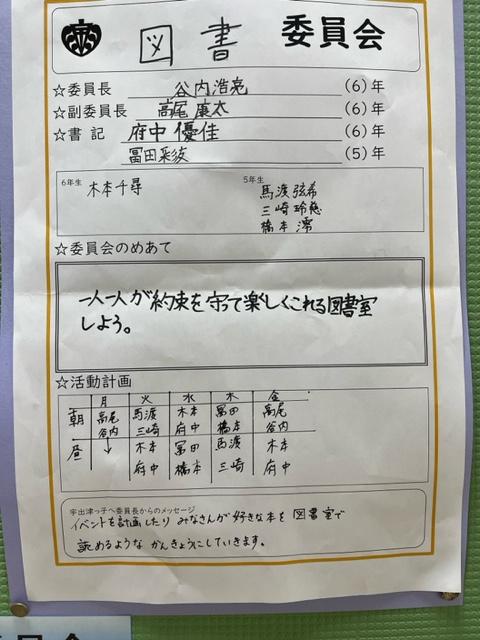 図書 委員会
☆委員長 谷内浩亮 (6)年
☆副委員長 高尾康太 (6)年
☆書記 府中優佳 (6)年
冨田彩紋 (5)年
6年生 木本千尋
5年生 馬渡弦希
三崎玲慈
橋本澪
☆委員会のめあて
一人一人が約束を守て楽しくこれる図書室
しよう。
☆活動計画
月 火 水 木 金
朝 高尾 馬渡 木本 冨田 高尾
谷内 三崎 府中 橋本 谷内
昼 ↓ 木本 冨田 馬渡 木本
府中 橋本 三崎 府中
宇出津っ子へ委員長からのメッセージ
イベントを計画したり みなさんが好きな本を 図書室で
読めるような かんきょうにしていきます。